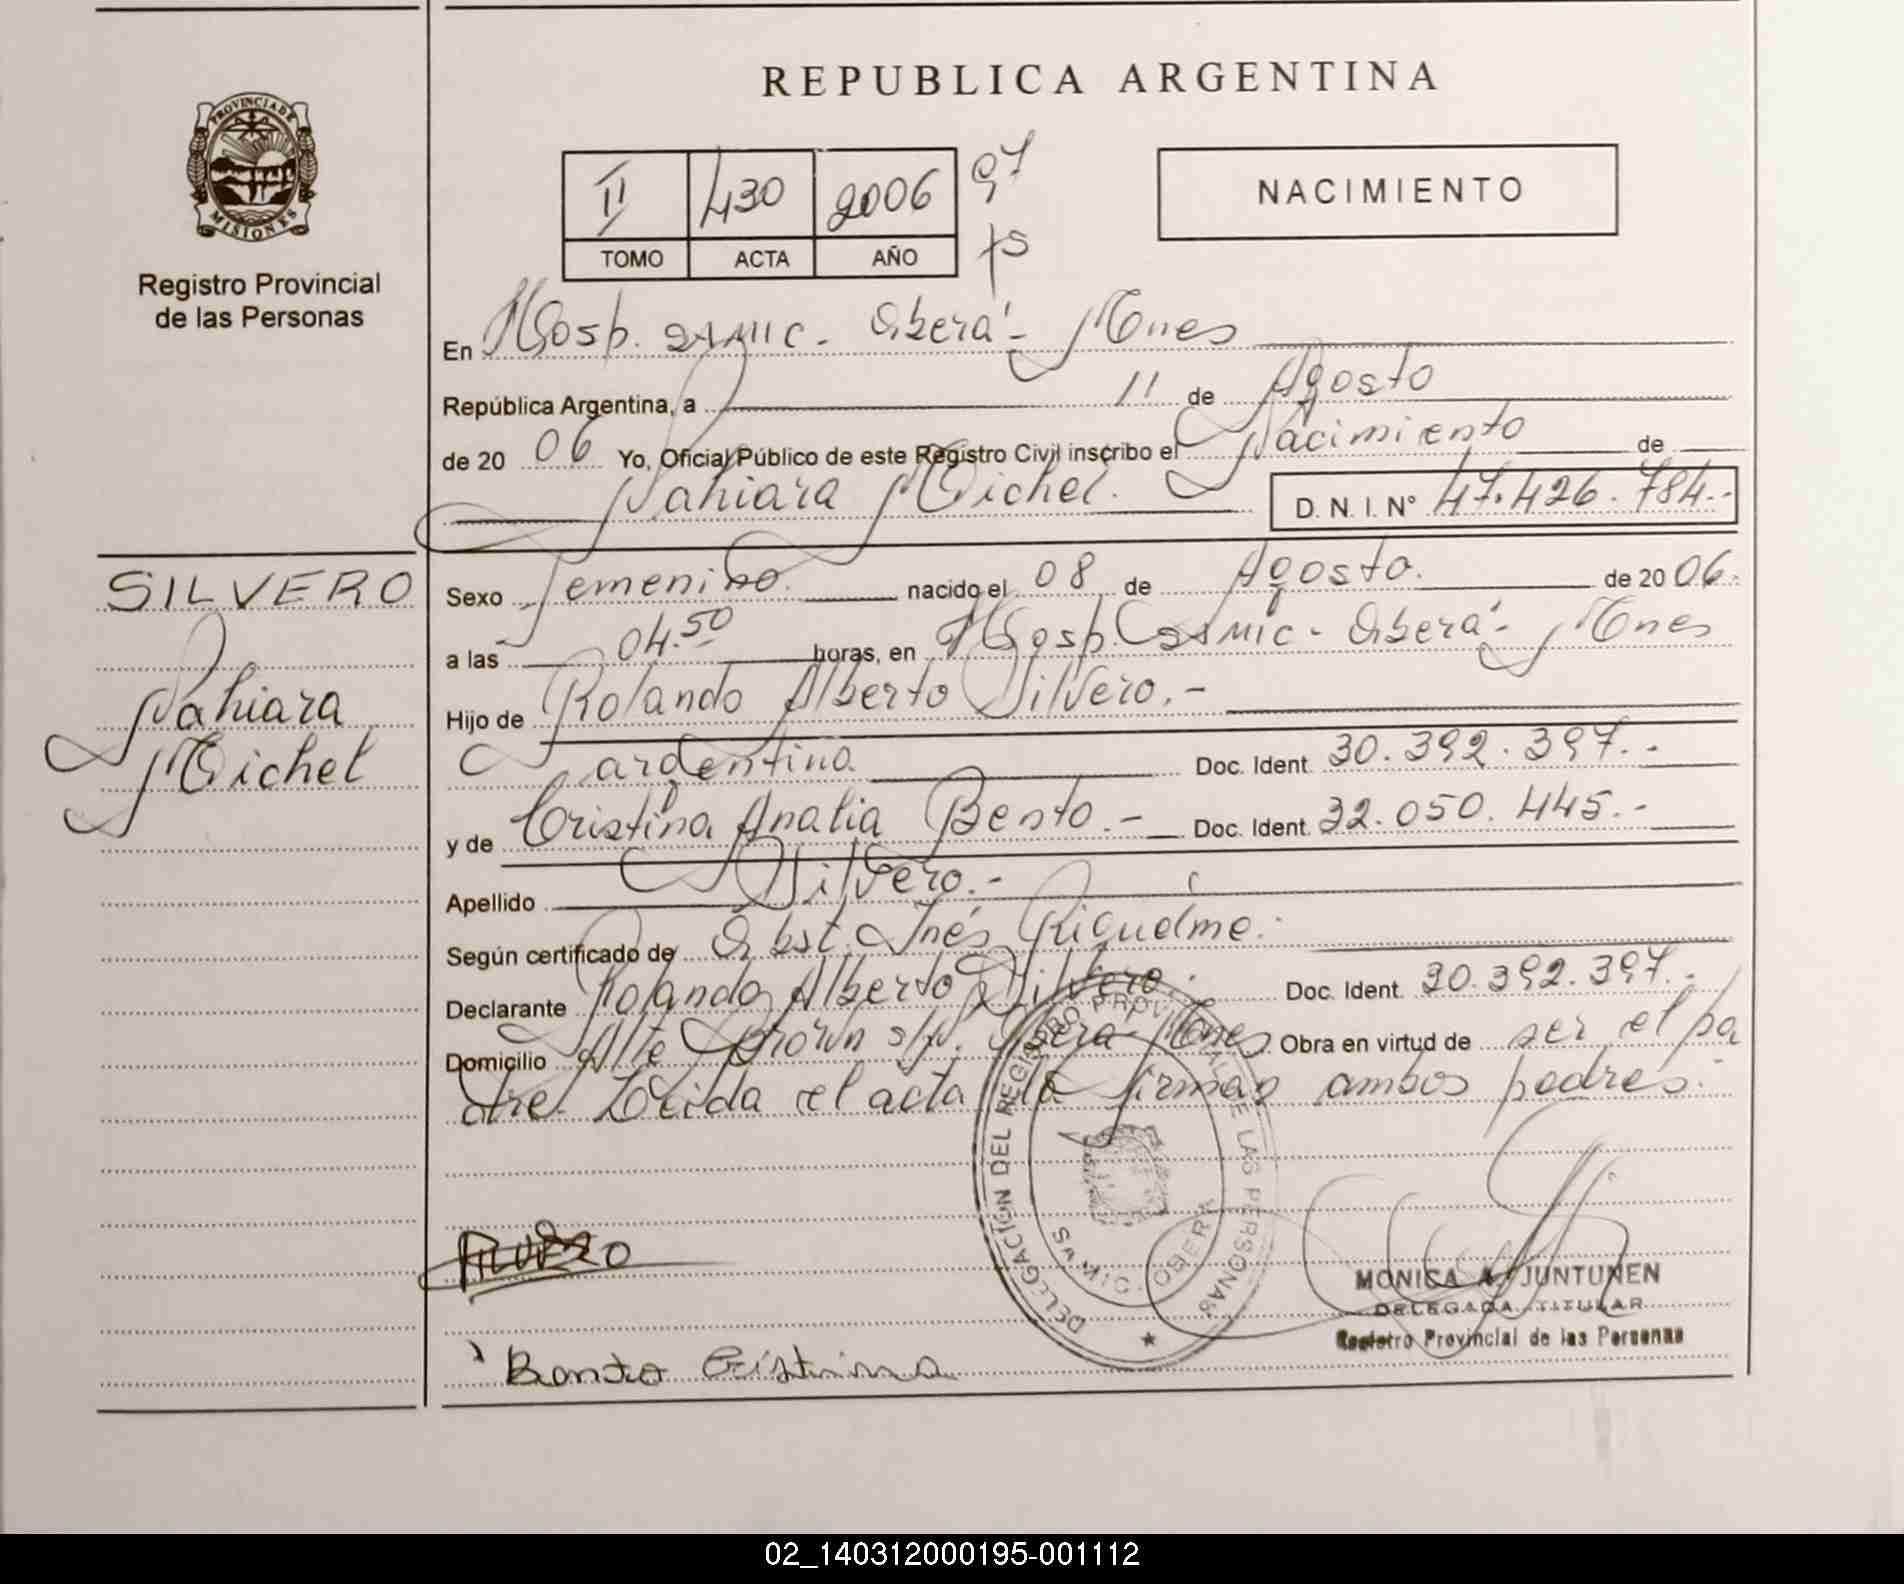 REPUBLICA ARGENTINA
PROVINCIA DE
MISIONES
Registro Provincial
de las Personas
II 430 2006
TOMO ACTA AÑO
97
NACIMIENTO
En Hosp. Samic - Oberá - Mnes
República Argentina, a 11 de Agosto
de 20 06 Yo, Oficial Público de este Registro Civil inscribo el Nacimiento de
Nahiara Michel. D. N. I. Nº 47.426.784.-
SILVERO
Nahiara
Michel
Sexo Femenino. nacido el 08 de Agosto. de 20 06.
a las 04.50 horas, en Hosp. Samic - Oberá - Mnes
Hijo de Rolando Alberto Silvero.-
argentino Doc. Ident. 30.392.397.-
y de Cristina Analia Bento.- Doc. Ident. 32.050.445.-
Apellido Silvero.-
Según certificado de Obst. Inés Riquelme.
Declarante Rolando Alberto Silvero. Doc. Ident. 30.392.397.-
Domicilio Alte Brown s/n. Oberá Mnes Obra en virtud de ser el pa
dre. Leida el acta la firman ambos padres.-
DELEGACIÓN DEL REGISTRO PROVINCIAL DE LAS PERSONAS
OBERA
SILVERO
MONICA A. JUNTUNEN
DELEGADA TITULAR
Registro Provincial de las Personas
Bento Cristina
02_140312000195-001112